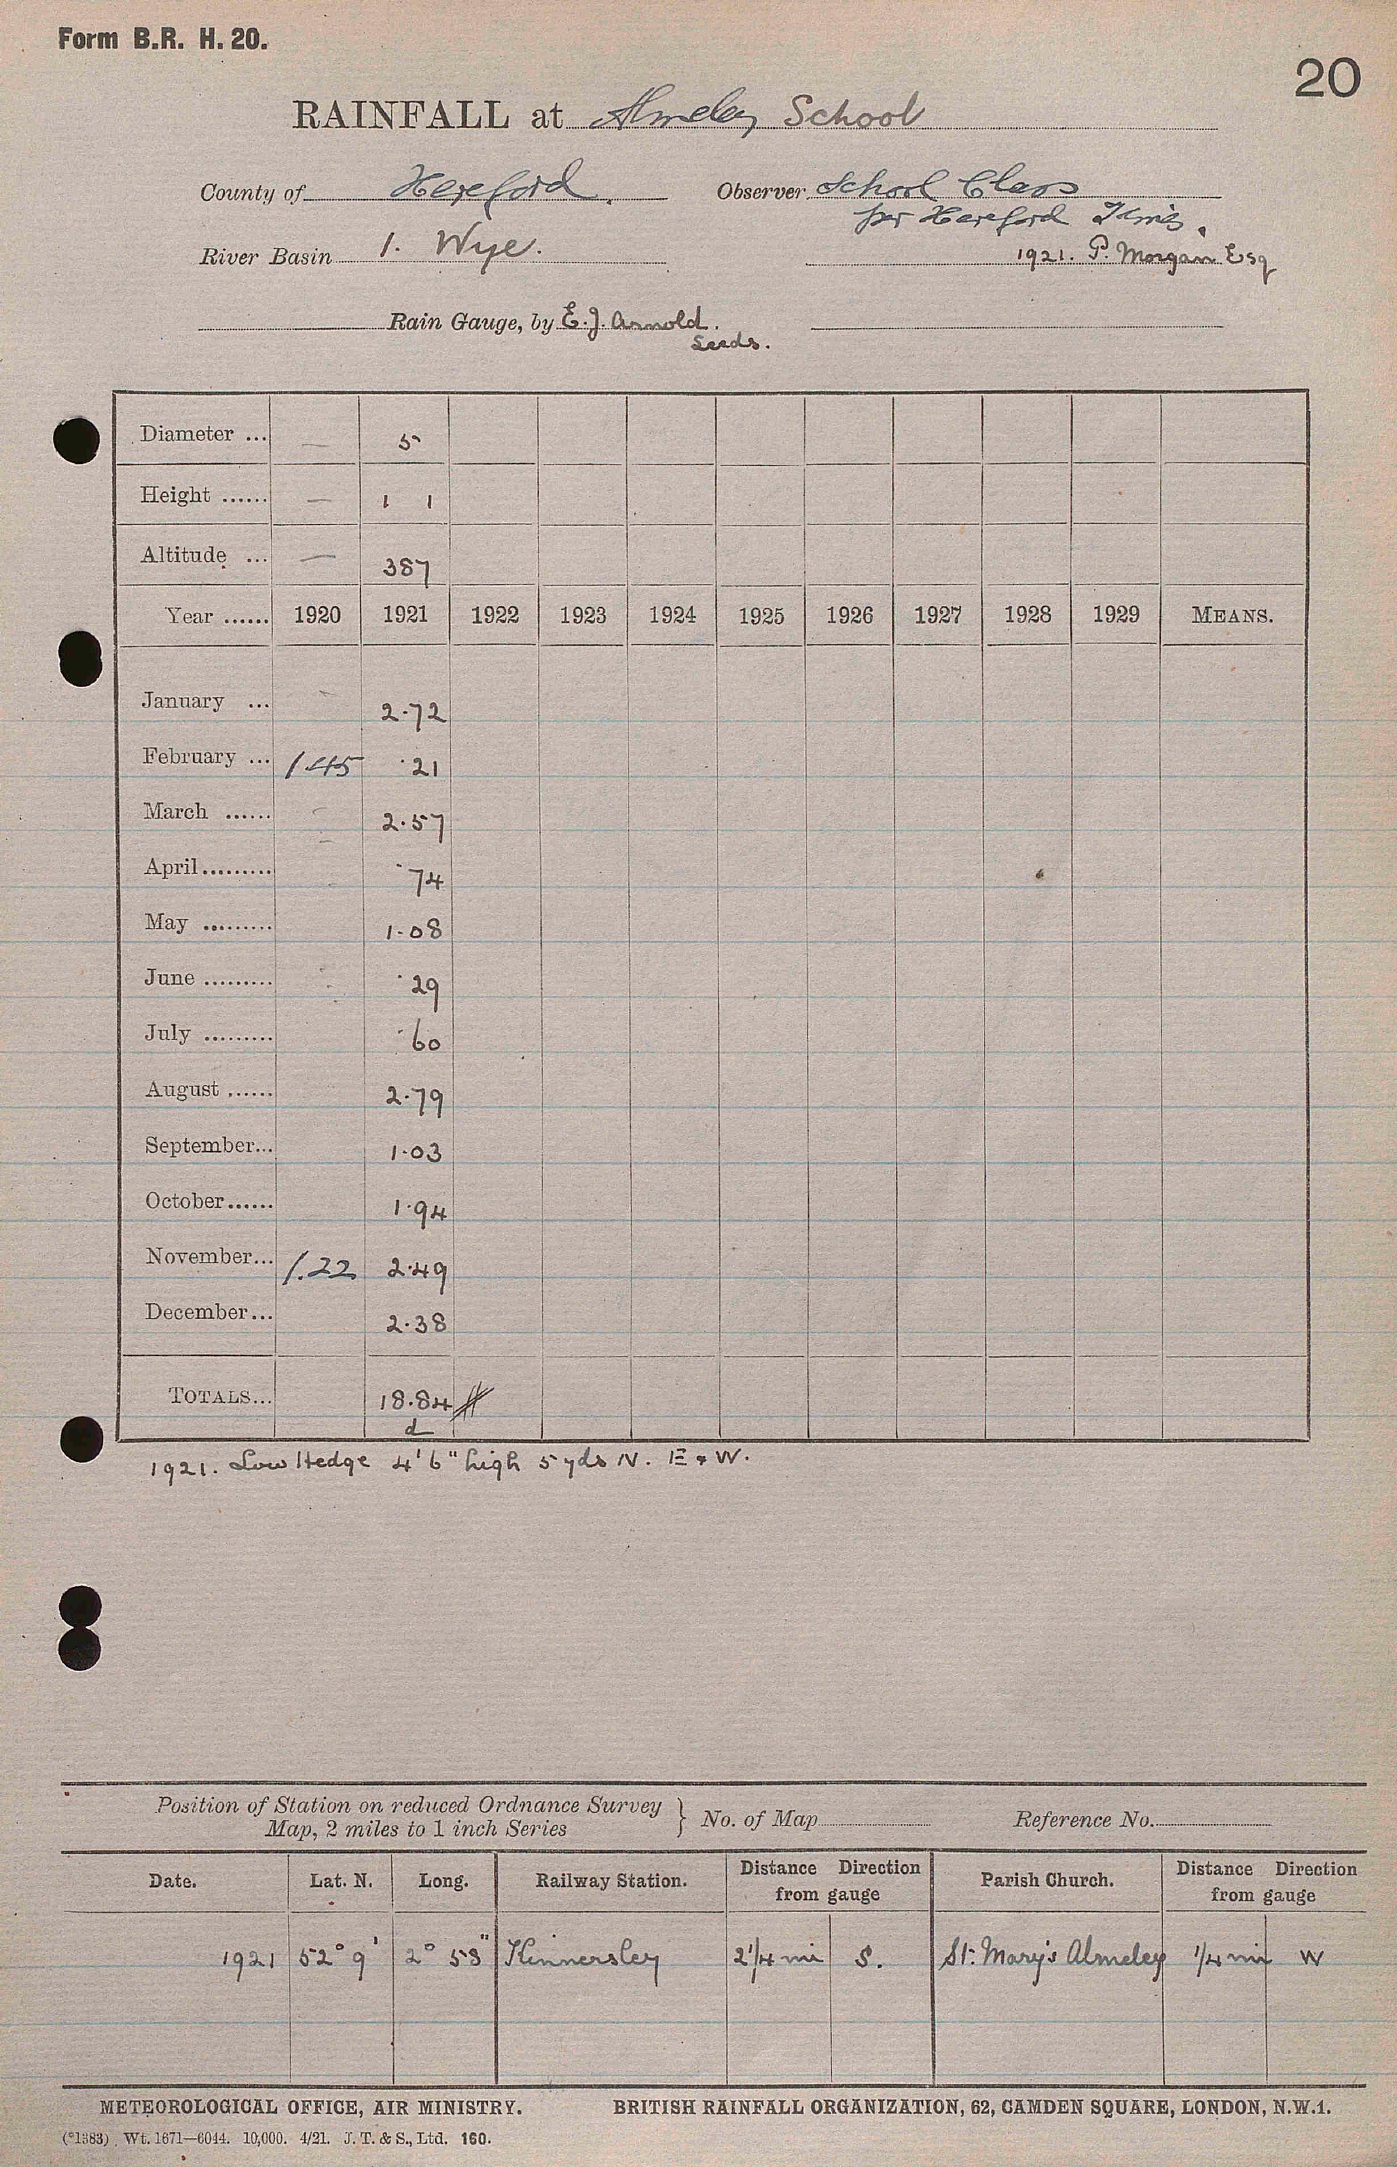 Form B.R. H. 20.
20
RAINFALL at Almeley School
County of Hereford. Observer School Class
per Hereford Times.
River Basin 1. Wye. 1921. P. Morgan Esq
Rain Gauge, by E. J. Arnold.
Leeds.
Diameter ... — 5
Height ...... — 1 1
Altitude ... — 387
Year ...... 1920 1921 1922 1923 1924 1925 1926 1927 1928 1929 MEANS.
January ... 2.72
February ... 1.45 .21
March ...... 2.57
April ......... .74
May ......... 1.08
June ......... .29
July ......... .60
August ...... 2.79
September... 1.03
October ...... 1.94
November... 1.22 2.49
December... 2.38
TOTALS... 18.84
d
1921. Low Hedge 4' 6" high 5 yds N. E & W.
Position of Station on reduced Ordnance Survey
Map, 2 miles to 1 inch Series } No. of Map Reference No.
Date. Lat. N. Long. Railway Station. Distance Direction from gauge Parish Church. Distance Direction from gauge
1921 52° 9' 2° 58" Kinnersley 2 1/4 mi S. St. Mary's Almeley 1/4 mi W
METEOROLOGICAL OFFICE, AIR MINISTRY. BRITISH RAINFALL ORGANIZATION, 62, CAMDEN SQUARE, LONDON, N.W.1.
(*1383) Wt. 1671—6044. 10,000. 4/21. J. T. & S., Ltd. 160.